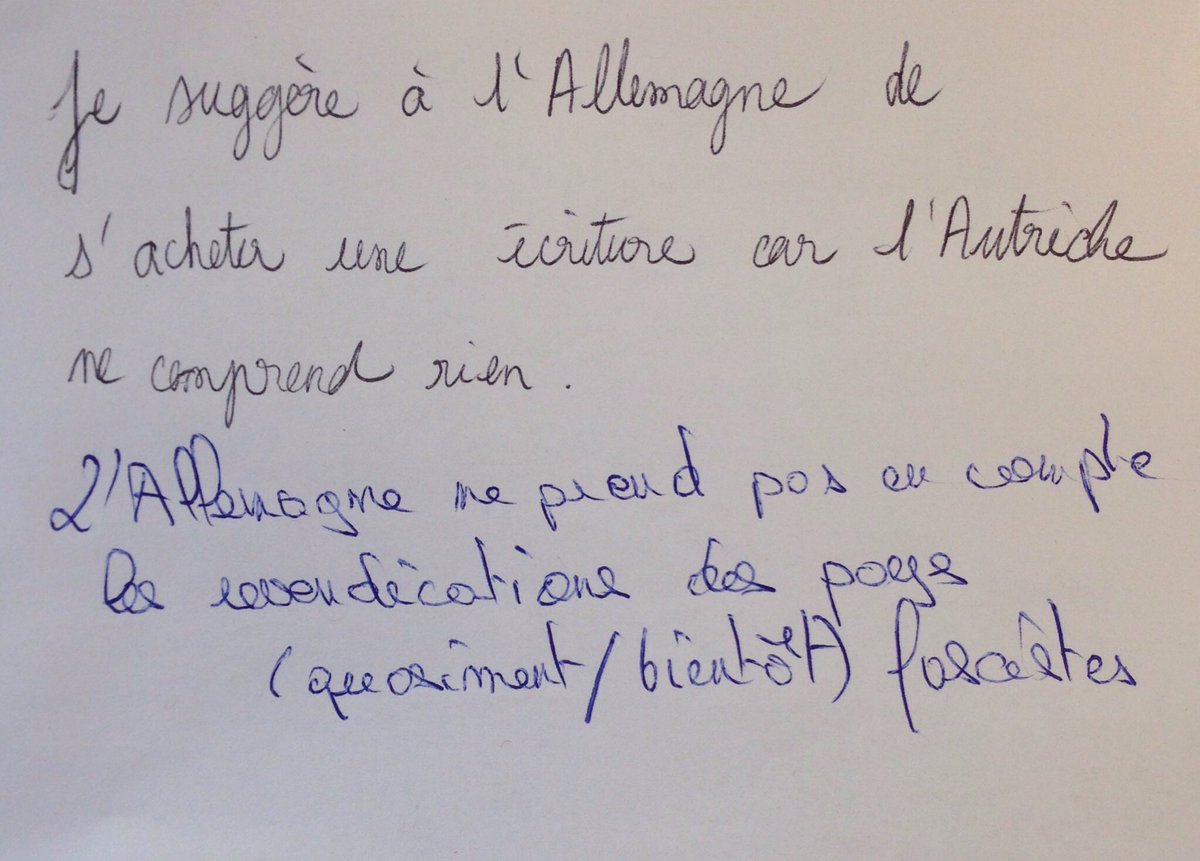 Je suggère à l'Allemagne de
s'acheter une écriture car l'Autriche
ne comprend rien.
L'Allemagne ne prend pas en compte
les revendications des pays
(quasiment/bientôt) fascistes